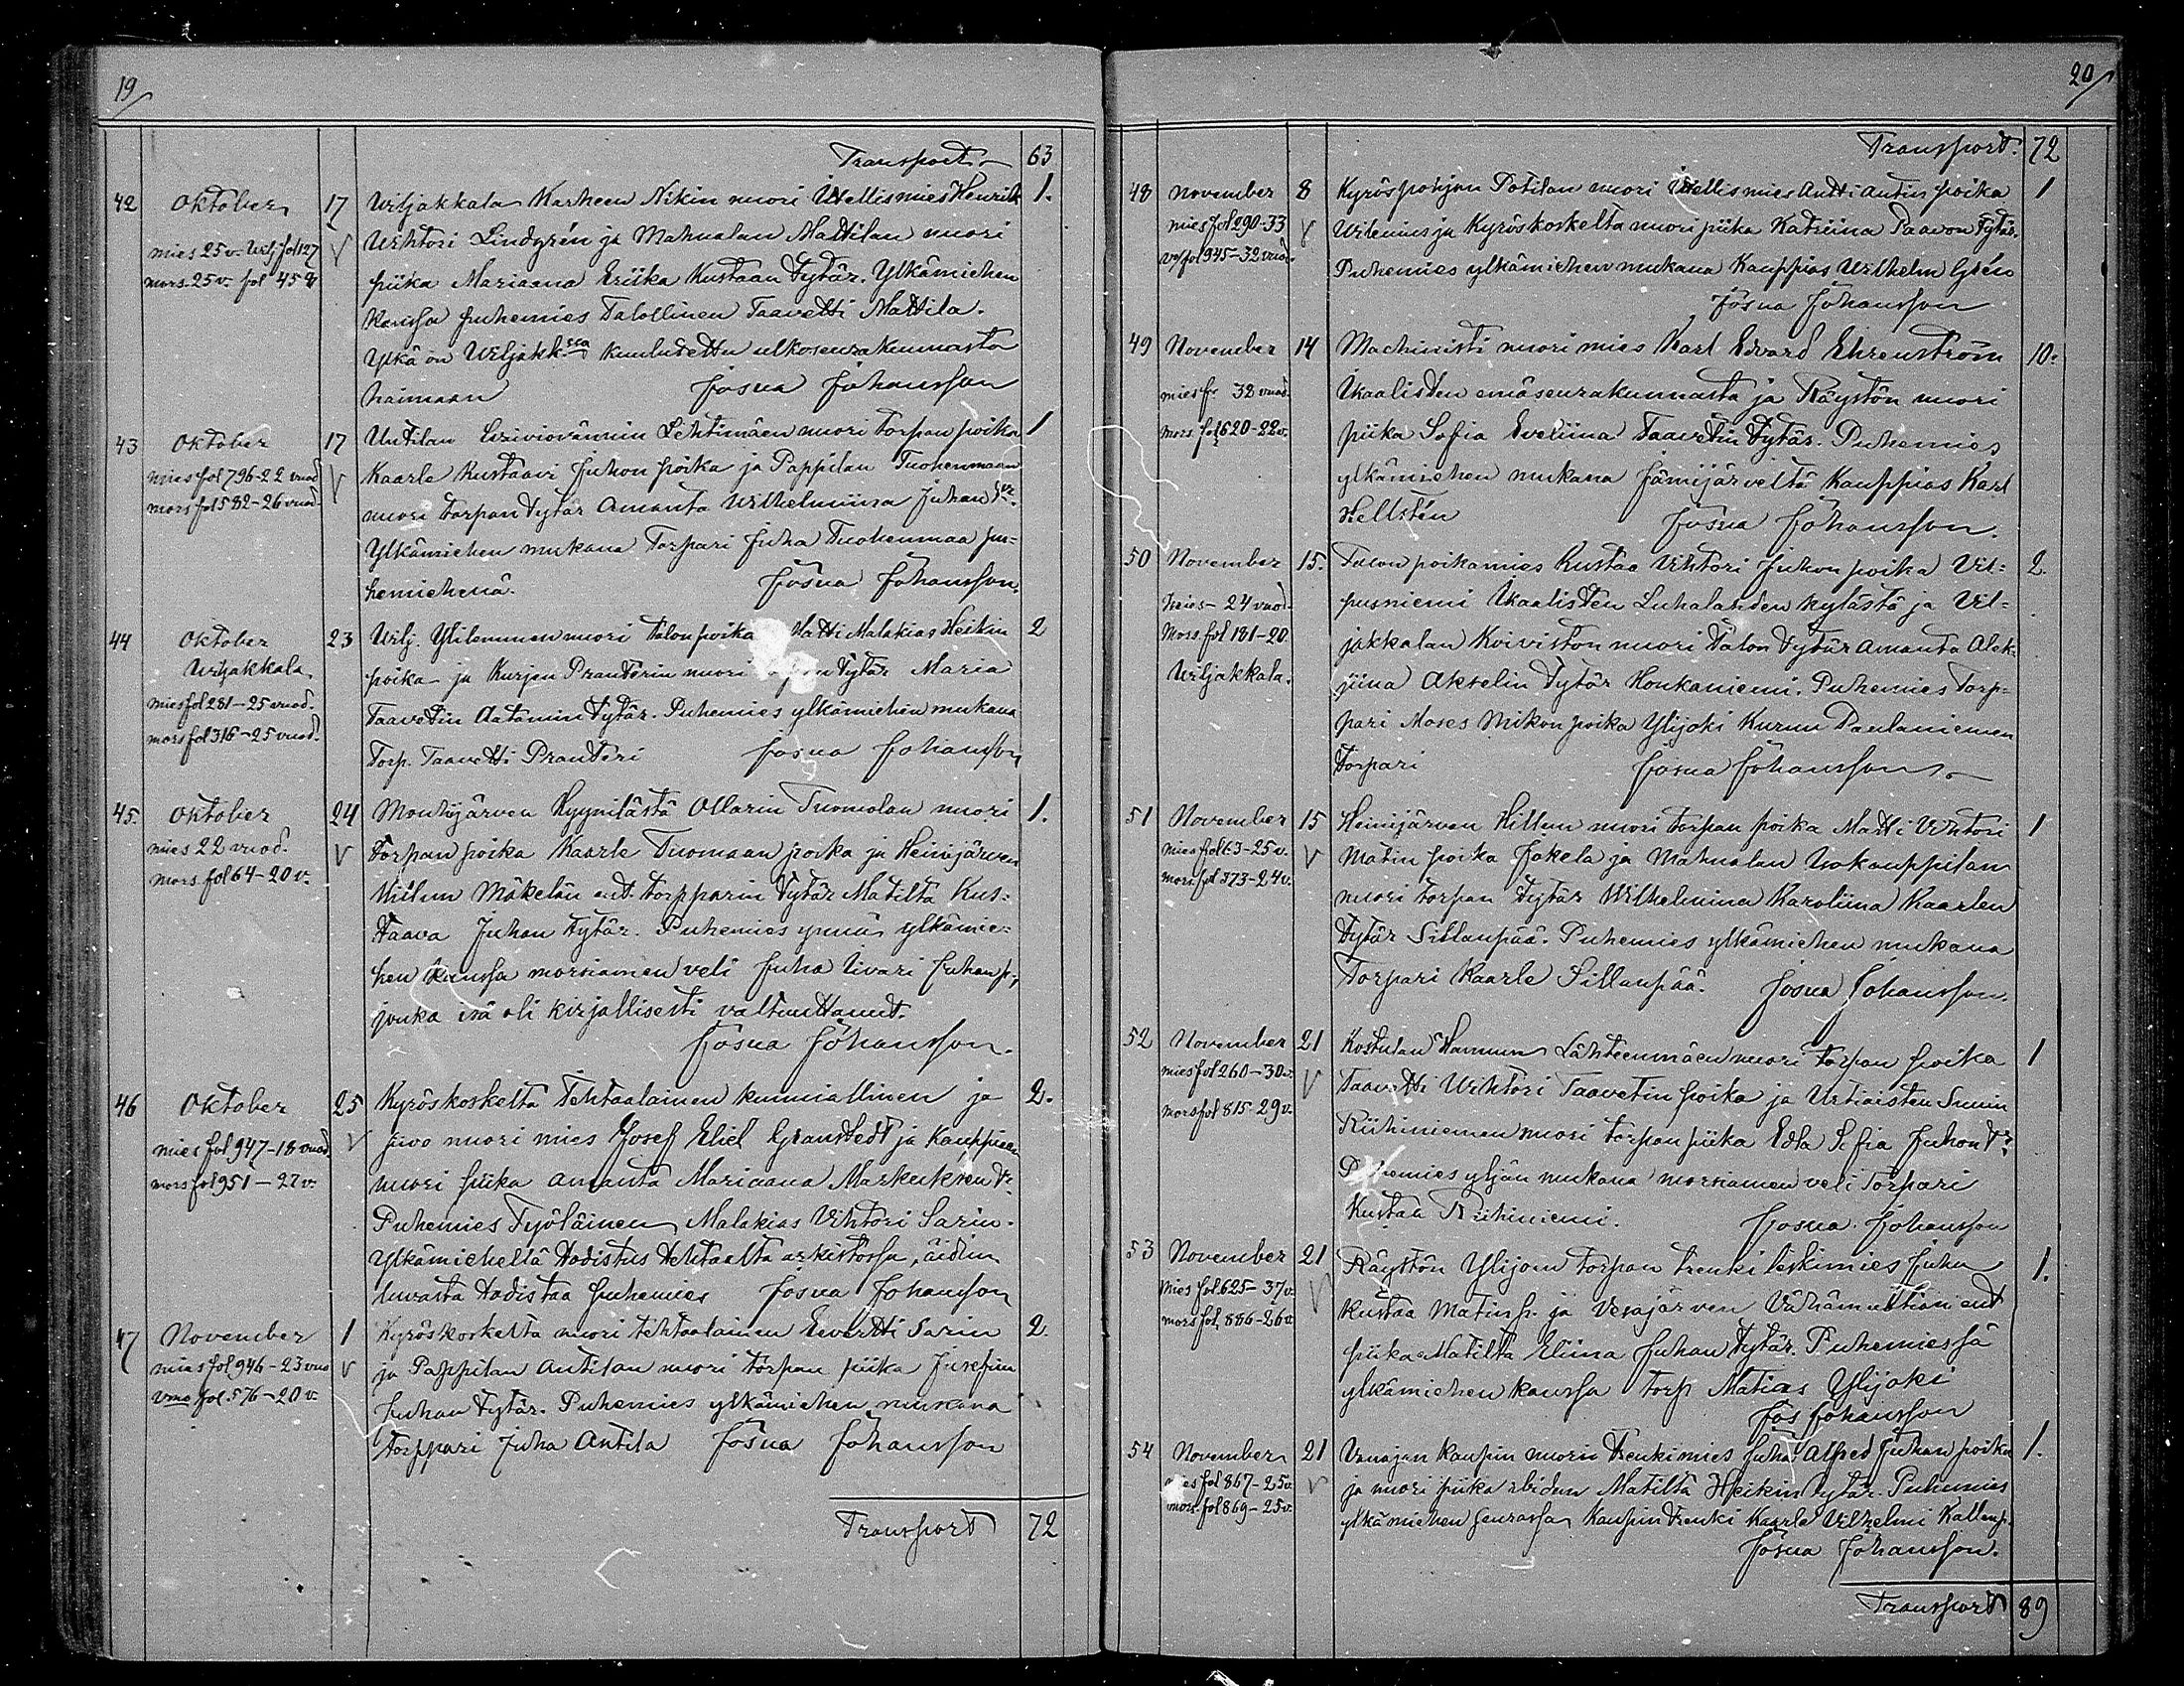 19
Transport 63
42 Oktober 17 Wiljakkala Karheen Nikin nuori Itellismies Henrik 1.
mies 25 v. Wilj fol 127 Wihtori Lindgrén ja Mahnalan Mattilan nuori
mors. 25 v. fol 45 piika Mariaana Eriika Kustaan tytär. Ylkämiehen
kanssa puhemies Talollinen Taavetti Mattila.
Ylkä on Wiljakk:ssa kuulutettu ulkoseurakunnasta
naimaan Josua Johansson
43 Oktober 17 Untilan Lehtimäen nuori torpan poika 1
mies fol 796-22 vuod Kaarle Kustaavi Juhon poika ja Pappilan Tuohenmaan
mors fol 582-26 vuod nuori torpan tytär Amanta Wilhelmiina Juhan tr.
Ylkämiehen mukana Torpari Juha Tuohenmaa pu-
hemiehenä. Josua Johansson.
44 Oktober 23 Wilj. nuori talon poika Matti Malakias Heikin 2
Wiljakkala poika ja Kurjen Pranterin nuori tytär Maria
mies fol 281-25 vuod. Taavetin Aatamin tytär. Puhemies ylkämiehen mukana
mors fol 316-25 vuod. Torp. Taavetti Pranteri Josua Johansson
45. Oktober 24 Mouhijärven Hyynilästä Ollarin Tuomolan nuori 1.
mies 22 vuod. torpan poika Kaarle Tuomaan poika ja Heinijärven
mors. fol 64-20 v. Hillun Mäkelän ent. torpparin tytär Matilta Kus-
taava Juhan tytär. Puhemies ynnä ylkämie-
hen kanssa morsiamen veli Juha Iivari Juhan p.,
jonka isä oli kirjallisesti valtuuttanut.
Josua Johansson.
46 Oktober 25 Kyröskoskelta Tehtaalainen kunniallinen ja 2.
mies fol 947-18 vuod. siivo nuori mies Josef Eliel Granstedt ja Kauppiaan
mors fol 951-27 v. nuori piika Amanta Mariaana tr.
Puhemies Työläinen Malakias Vihtori Sarin.
Ylkämieheltä todistus tehtaalta arkistossa, äidin
luvasta todistaa puhemies Josua Johansson
47 November 1 Kyröskoskelta nuori tehtaalainen Eevertti Sarin 2.
mies fol 946-23 vuo ja Pappilan Antilan nuori torpan piika Josefina
vmo fol 576-20 v. Juhan tytär. Puhemies ylkämiehen mukana
torppari Juha Antila Josua Johansson
Transport 72
20
Transport. 72
48 November 8 Kyröspohjan Potilan nuori itellismies Antti Antin poika 1
mies fol 290-33 Wilenius ja Kyröskoskelta nuori piika Katriina Paavon tytär.
fol 945-32 vuod. Puhemies ylkämiehen mukana Kauppias Wilhelm Grén
Josua Johansson
49 November 14 Machinisti nuori mies Karl Edvard Ehrenström 10.
mies fr 32 vuod. Ikaalisten emäseurakunnasta ja Räystön nuori
mors. fol 620-22 v. piika Sofia Eveliina Taavetin tytär. Puhemies
ylkämiehen mukana Jämijärveltä Kauppias Karl
Hellstén Josua Johansson.
50 November 15. Talon poikamies Kustaa Vihtori Juhon poika Vil- 2.
mies-24 vuod. pusniemi Ikaalisten Luhalahden kylästä ja Vil-
Mors. fol 181-20 jakkalan Koiviston nuori talon tytär Amanta Alek-
Wiljakkala. siina Akselin tytär Honkaniemi. Puhemies Torp-
pari Moses Mikon poika Ylijoki Kurun Paulaniemen
torpari Josua Johansson
51 November 15 Heinijärven Hillun nuori torpan poika Matti Vihtori 1
mies fol 63-25 v. Matin poika Jokela ja Mahnalan Isokauppilan
mors. fol 373-24 v. nuori torpan tytär Wilhelmiina Karoliina Kaarlen
tytär Sillanpää. Puhemies ylkämiehen mukana
Torpari Kaarle Sillanpää. Josua Johansson.
52 November 21 Kostulan Hannun Lähteenmäen nuori torpan poika 1
mies fol 260-30 v. Taavetti Wihtori Taavetin poika ja Urtiaisten Sunin
mors fol 815-29 v. Riihiniemen nuori torpan piika Edla Sofia Juhon tr.
Puhemies yljän mukana morsiamen veli torpari
Kustaa Riihiniemi. Josua Johansson
53 November 21 Räystön Ylijoen torpan trenki leskimies Juha 1.
mies fol 625-37 v. Kustaa Matin p. ja Vesajärven ent
mors fol 886-26 v. piika Matilta Eliina Juhan tytär. Puhemiessä
ylkämiehen kanssa torp Matias Ylijoki
Jos Johansson
54 November 21 Vanajan Kaupin nuori trenkimies Juha Alfred Juhan poika 1.
mies fol 867-25 v. ja nuori piika ibidem Matilta Heikin tytär. Puhemies
mors. fol 869-25 v. ylkämiehen seurassa Kaupin trenki Kaarle Vilhelmi Kallenp.
Josua Johansson.
Transport 89